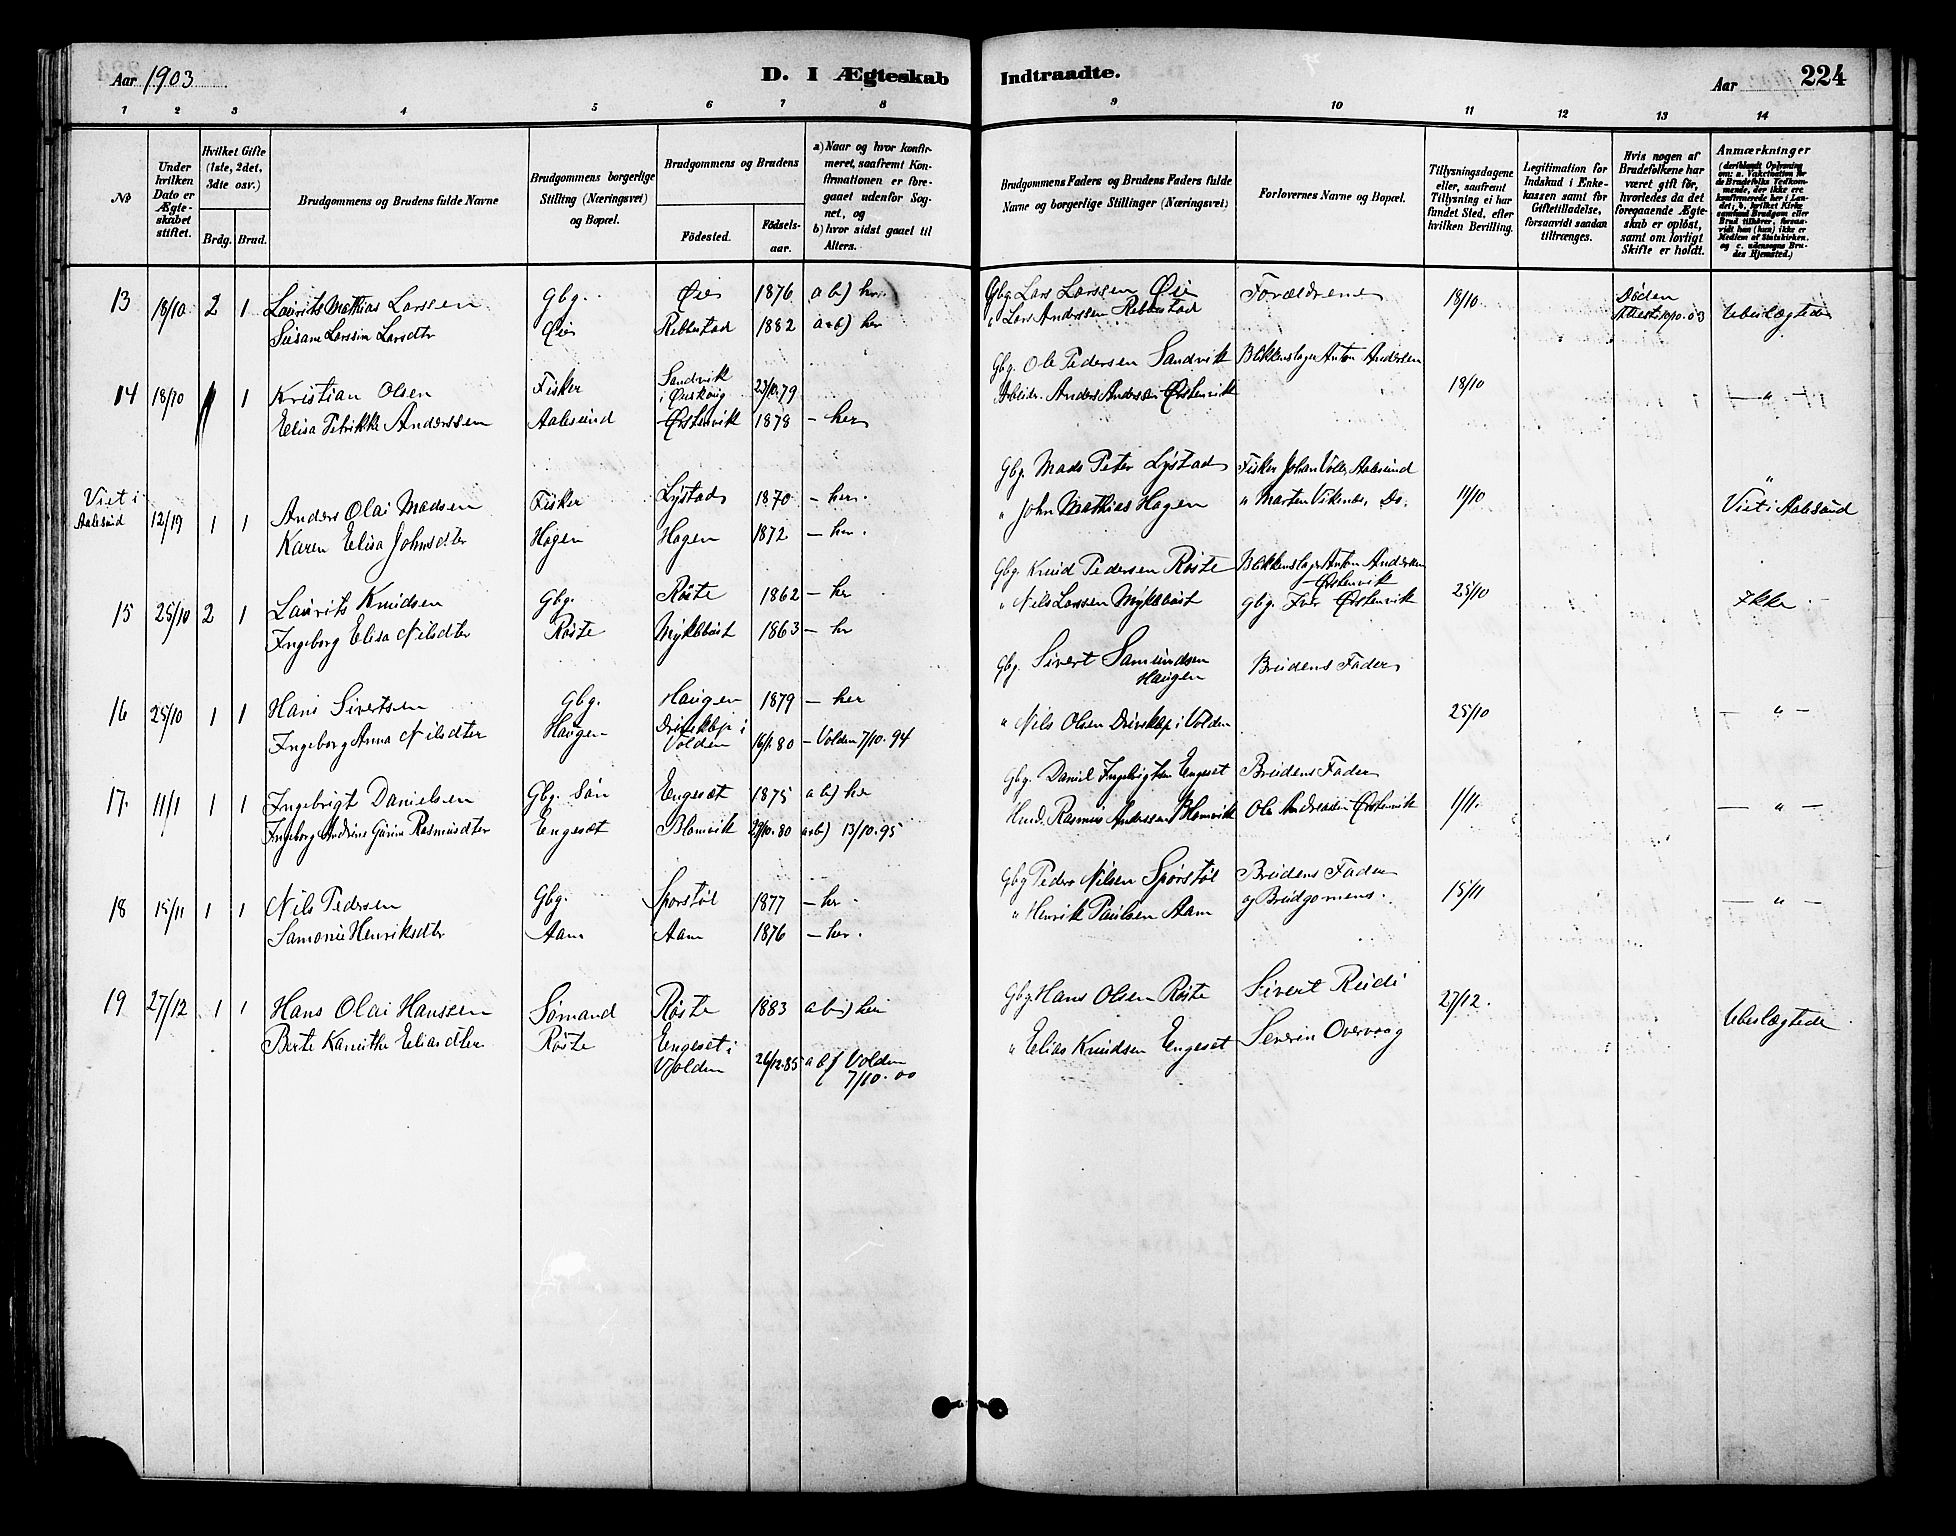 Aar 1903
D. I Ægteskab Indtraadte.
Aar
224
1 2 3 4 5 6 7 8 9 10 11 12 13 14
No
Under hvilken Dato er Ægteskabet stiftet.
Hvilket Gifte (1ste, 2det, 3die osv.)
Brdg. Brud.
Brudgommens og Brudens fulde Navne
Brudgommens borgerlige Stilling (Næringsvei) og Bopæl.
Brudgommens og Brudens
Fødested.
Fødselsaar.
a) Naar og hvor konfirmeret, saafremt Konfirmationen er foregaaet udenfor Sognet, og
b) hvor sidst gaaet til Alters.
Brudgommens Faders og Brudens Faders fulde Navne og borgerlige Stillinger (Næringsvei)
Forlovernes Navne og Bopæl.
Tillysningsdagene eller, saafremt Tillysning ei har fundet Sted, efter hvilken Bevilling.
Legitimation for Indskud i Enkekassen samt for Giftetilladelse, forsaavidt saadan tiltrænges.
Hvis nogen af Brudefolkene har været gift før, hvorledes da det foregaaende Ægteskab er opløst, samt om lovligt Skifte er holdt.
Anmærkninger (deriblandt Oplysning om: a. Vaktination for de Brudefolks Vedkommende, der ikke ere konfirmerede her i Landet; b. hvilket Kirkesamfund Brudgom eller Brud tilhører, forsaavidt han (hun) ikke er Medlem af Statskirken, og c. udensogns Brudes Hjemsted.)
13 18/10 2 1 Laurits Mathias Larssen Gbg. Øie 1876 a b) her Gbg Lars Larssen Øie Forældrene 18/10 Døden Attest 10/10.03 Ubeslægtede
Larsdtr Øie Rebbestad 1882 a+b) her " Lars Anderssen Rebbestad
14 18/10 1 Kristian Olsen Fisker Sandvik i Ørskoug 23/10.79 Gbg. Ole Pedersen Sandvik Bakkenslager Anton Andersen 18/10 — " —
Elisa Petrikke Anderssen Aalesund Ørstenvik 1878 — her Arbeidr. Anders Andersen Ørstenvik
Viet i Aalesund 12/19 1 1 Anders Olai Madsen Fisker Lystad 1870 — her. Gbg. Mads Peter Lystad Fisker Johan Aalesund 11/10 " Viet i Aalesund
Karen Elisa Johnsdtr Hagen Hagen 1872 — her. " John Mathias Hagen " Marten Viknes, Do.
15 25/10 2 1 Laurits Knudsen Gbg. Røste 1862 — her Gbg. Knud Pedersen Røste Bakkenslager Anton Andersen Ørstenvik 25/10 Ikke
Ingeborg Elisa Nilsdtr Røste Myklebust 1863 — hr " Nils Larssen Myklebust Gbg. Iver Ørstenvik
16 25/10 1 1 Hans Sivertsen Gbg. Haugen 1879 — her Gbg. Sivert Samundsen Haugen Brudens Fader 25/10 — " —
Ingeborg Anna Nilsdtr Haugen Driveklep i Volden 16/1.80 — Volden 7/10.94 " Nils Olsen Drivklep i Volden
17. 11/1 1 1 Ingebrigt Danielsen Gbg. Søn Engeset 1875 a b) her Gbg. Daniel Ingebrigtsen Engeset Brudens Fader 1/11. — " —
Ingeborg Andrine Gurine Rasmusdtr Engeset Blomvik 29/10.80 a+b) 13/10.95 Husd. Rasmus Anderssen Blomvik Ole Andreasen Ørstenvik
18 15/11 1 1 Nils Pedersen Gbg. Sporstøl 1877 — her. Gbg Peder Nilsen Sporstøl Brudens Fader 15/11 — " —
Samonie Henriksdtr Aam Aam 1876 — her. " Henrik Paulsen Aam og Brudgomens.
19 27/12 1 1 Hans Olai Hanssen Sømand Røste 1883 a b) her Gbg Hans Olsen Røste Sivert Rudi 27/12. Ubeslægtede
Berte Kanutte Eliasdtr Røste Engeset i Volden 26/12.85 a b) Volden 7/10.00 " Elias Knudsen Engeset Severin Overvaag